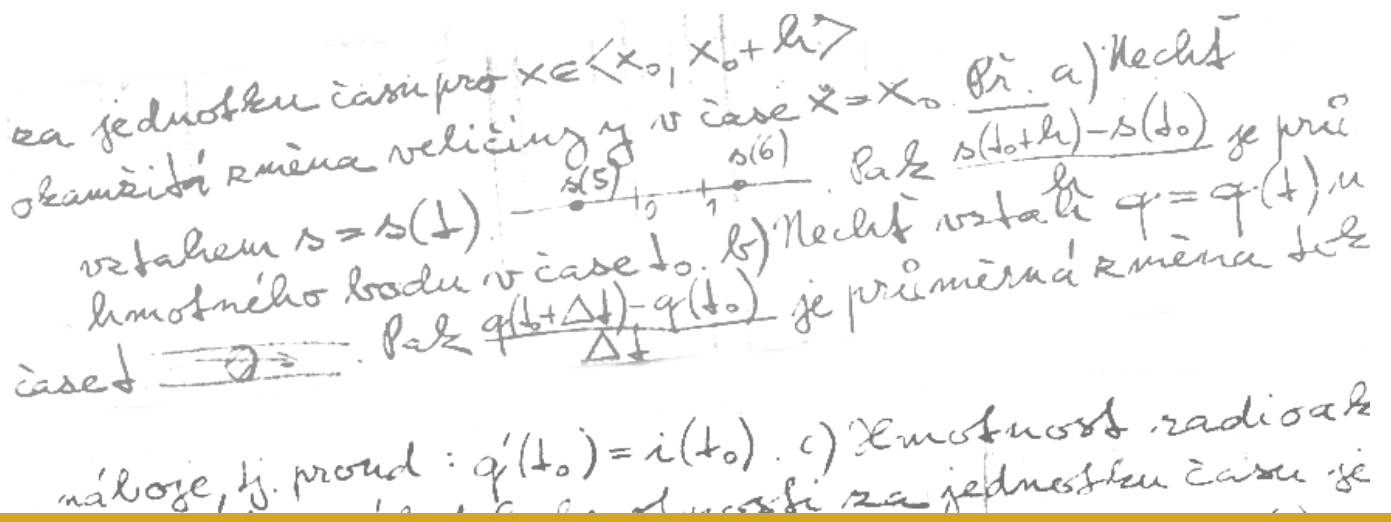 za jednotku času pro x∈<x₀, x₀+h>
okamžitá změna veličiny y v čase x=x₀. Př. a) Nechť
vztahem s=s(t) s(5) 0 1 s(6). Pak (s(t₀+h)-s(t₀))/h je prů
hmotného bodu v čase t₀. b) Nechť vztah q=q(t) u
čase t. Pak (q(t₀+Δt)-q(t₀))/Δt je průměrná změna tok
náboje, tj. proud: q'(t₀)=i(t₀). c) Hmotnost radioak
za jednotku času je